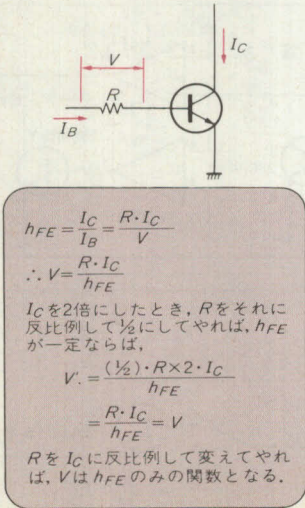 V
R
I_B
I_C
h_FE = I_C/I_B = R·I_C/V
∴ V = R·I_C/h_FE
I_Cを2倍にしたとき，Rをそれに
反比例して½にしてやれば，h_FE
が一定ならば，
V'. = (½)·R×2·I_C/h_FE
= R·I_C/h_FE = V
RをI_Cに反比例して変えてやれ
ば，Vはh_FEのみの関数となる．